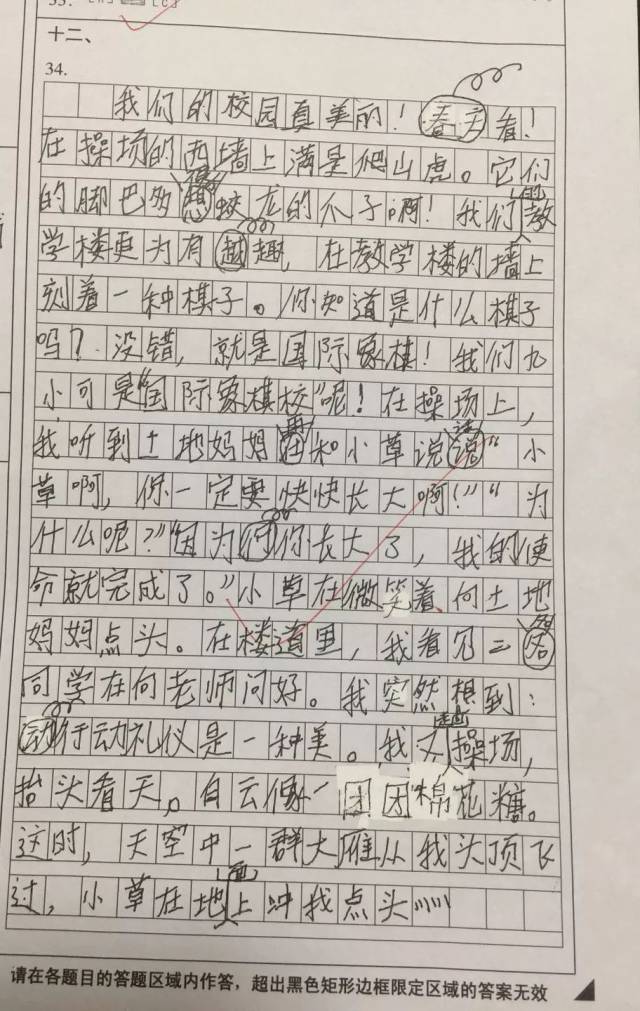 十二、
34.
我们的校园真美丽！春天看！
在操场的西墙上满是爬山虎。它们
的脚巴多像蛟龙的爪子啊！我们的教
学楼更为有趣，在教学楼的墙上
刻着一种棋子。你知道是什么棋子
吗？没错，就是国际象棋！我们九
小可是“国际象棋校”呢！在操场上，
我听到土地妈妈再和小草说话“小
草啊，你一定要快快长大啊！”“为
什么呢？”“因为你长大了，我的使
命就完成了。”小草在微笑着、向土地
妈妈点头。在楼道里，我看见二名
同学在向老师问好。我突然想到：
行动礼仪是一种美。我又走操场，
抬头看天。白云像一团团棉花糖。
这时，天空中一群大雁从我头顶飞
过，小草在地面上冲我点头……
请在各题目的答题区域内作答，超出黑色矩形边框限定区域的答案无效